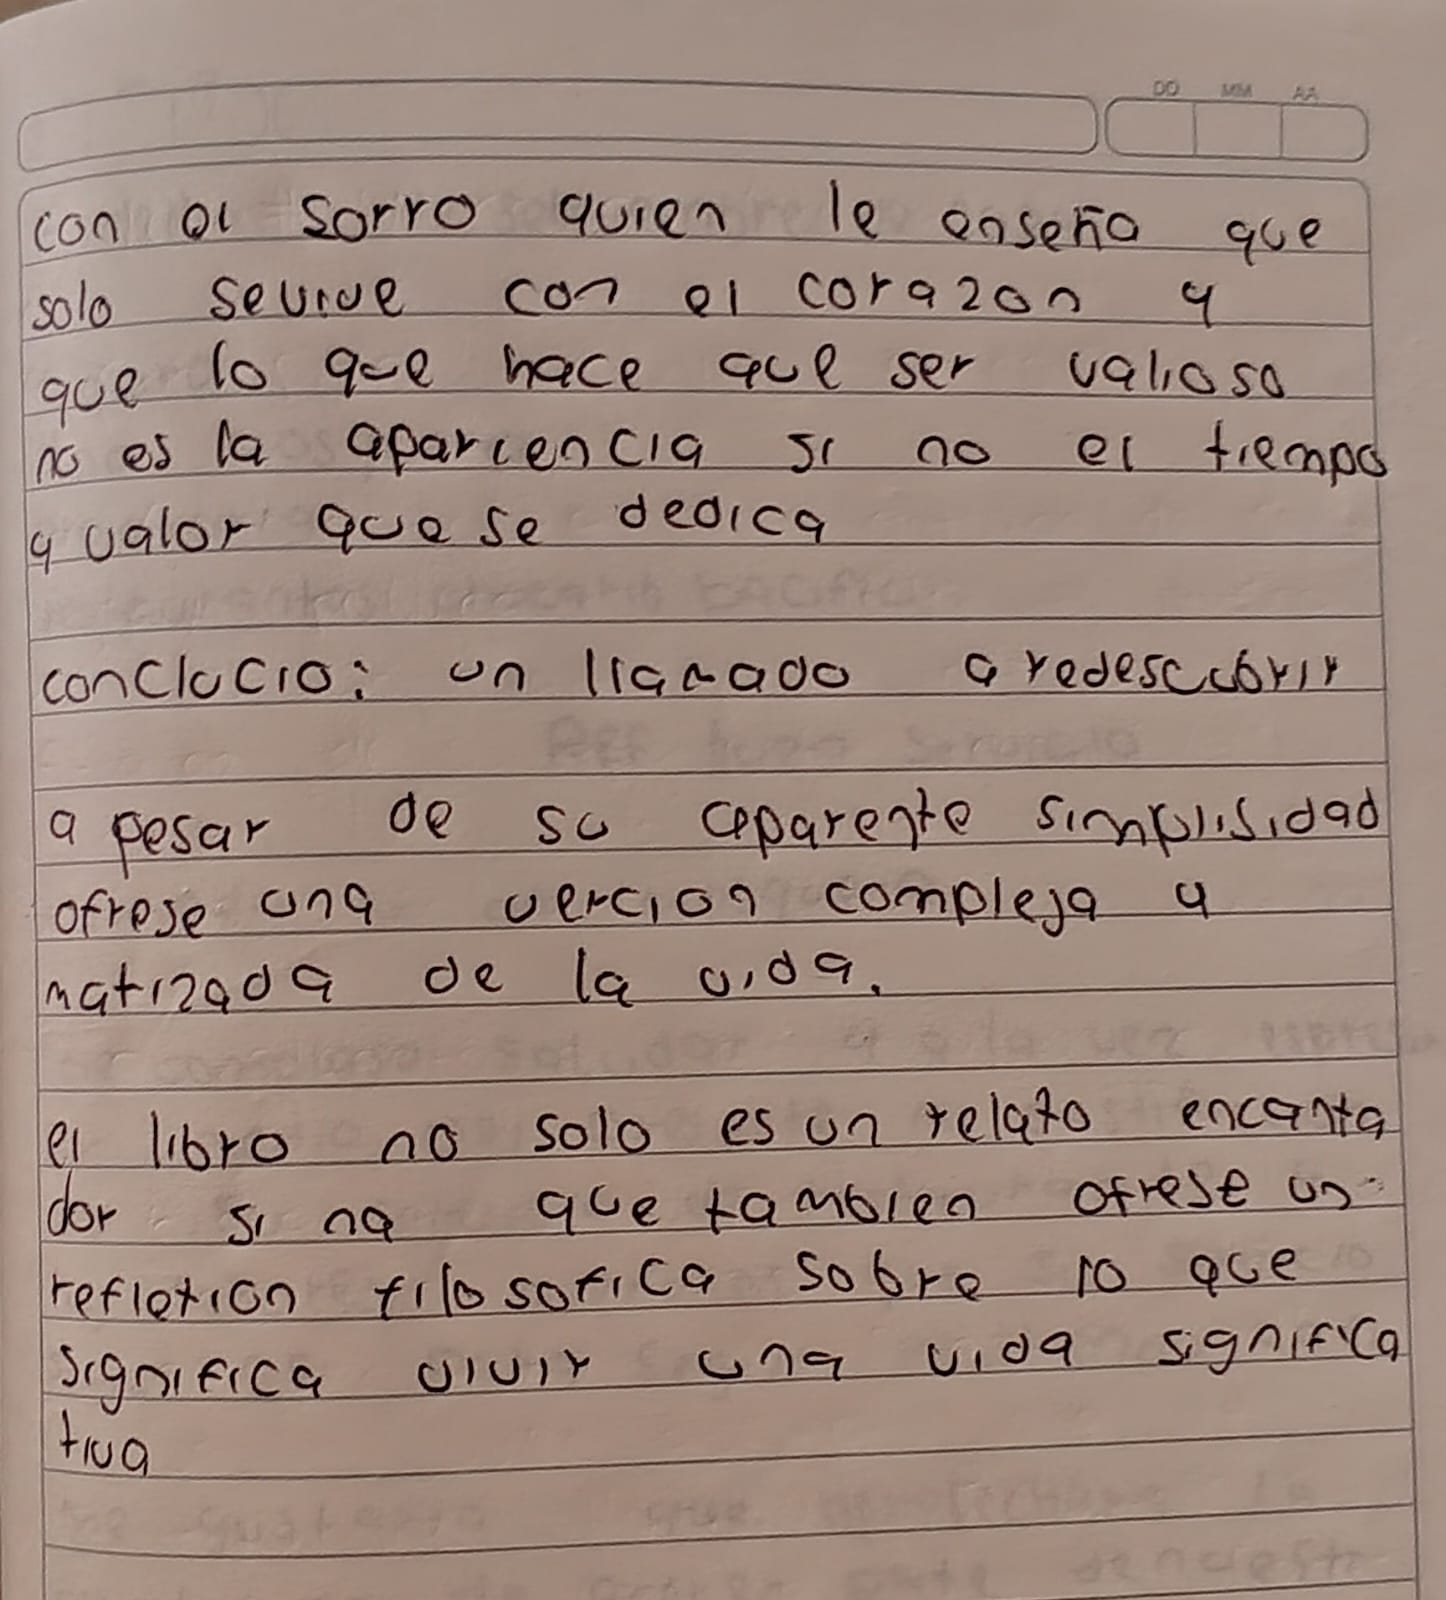 DD MM AA
con el sorro quien le enseño que
solo sevive con el corazon y
que lo que hace que ser valioso
no es la apariencia si no el tiempo
y valor que se dedica
conclucio: un llamado a redescubrir
a pesar de su aparente simplisidad
ofrese una vercion compleja y
matizada de la vida.
el libro no solo es un relato encanta
dor si na que tambien ofrese un
reflexion filosofica sobre lo que
significa vivir una vida significa
tiva